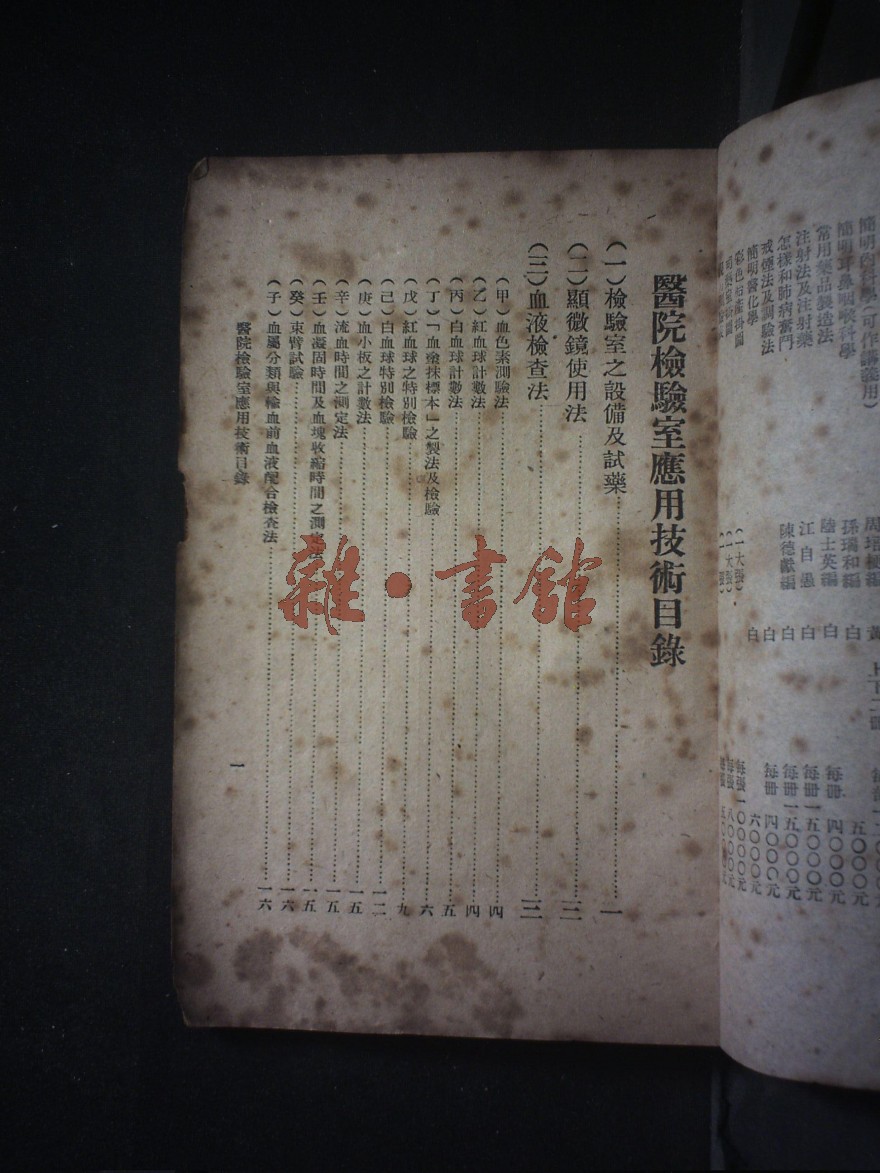 醫院檢驗室應用技術目錄
(一)檢驗室之設備及試藥……一
(二)顯微鏡使用法……三
(三)血液檢查法……三
(甲)血色素測驗法……四
(乙)紅血球計數法……四
(丙)白血球計數法……五
(丁)「血塗抹標本」之製法及檢驗……六
(戊)紅血球之特別檢驗……九
(己)白血球特別檢驗……一二
(庚)血小板之計數法……一五
(辛)流血時間之測定法……一五
(壬)血凝固時間及血塊收縮時間之測定法……一五
(癸)束臂試驗……一六
(子)血屬分類與輸血前血液配合檢查法……一六
醫院檢驗室應用技術目錄
一
雜·書館
簡明內科學(可作講義用)
簡明耳鼻咽喉科學 孫瑞和編 白 五〇〇〇元
常用藥品製造法 陸士英編 白 每冊 四〇〇〇元
注射法及注射藥 江自愚 白 每冊一五〇〇〇元
怎樣和肺病奮鬥 陳德獻編 白 每冊一五〇〇〇元
戒煙法及測驗法 白 每冊 四〇〇〇元
簡明醫化學 白 六〇〇〇元
(一大張) 每張一〇〇〇〇元
(一大張) 每張 八〇〇〇元